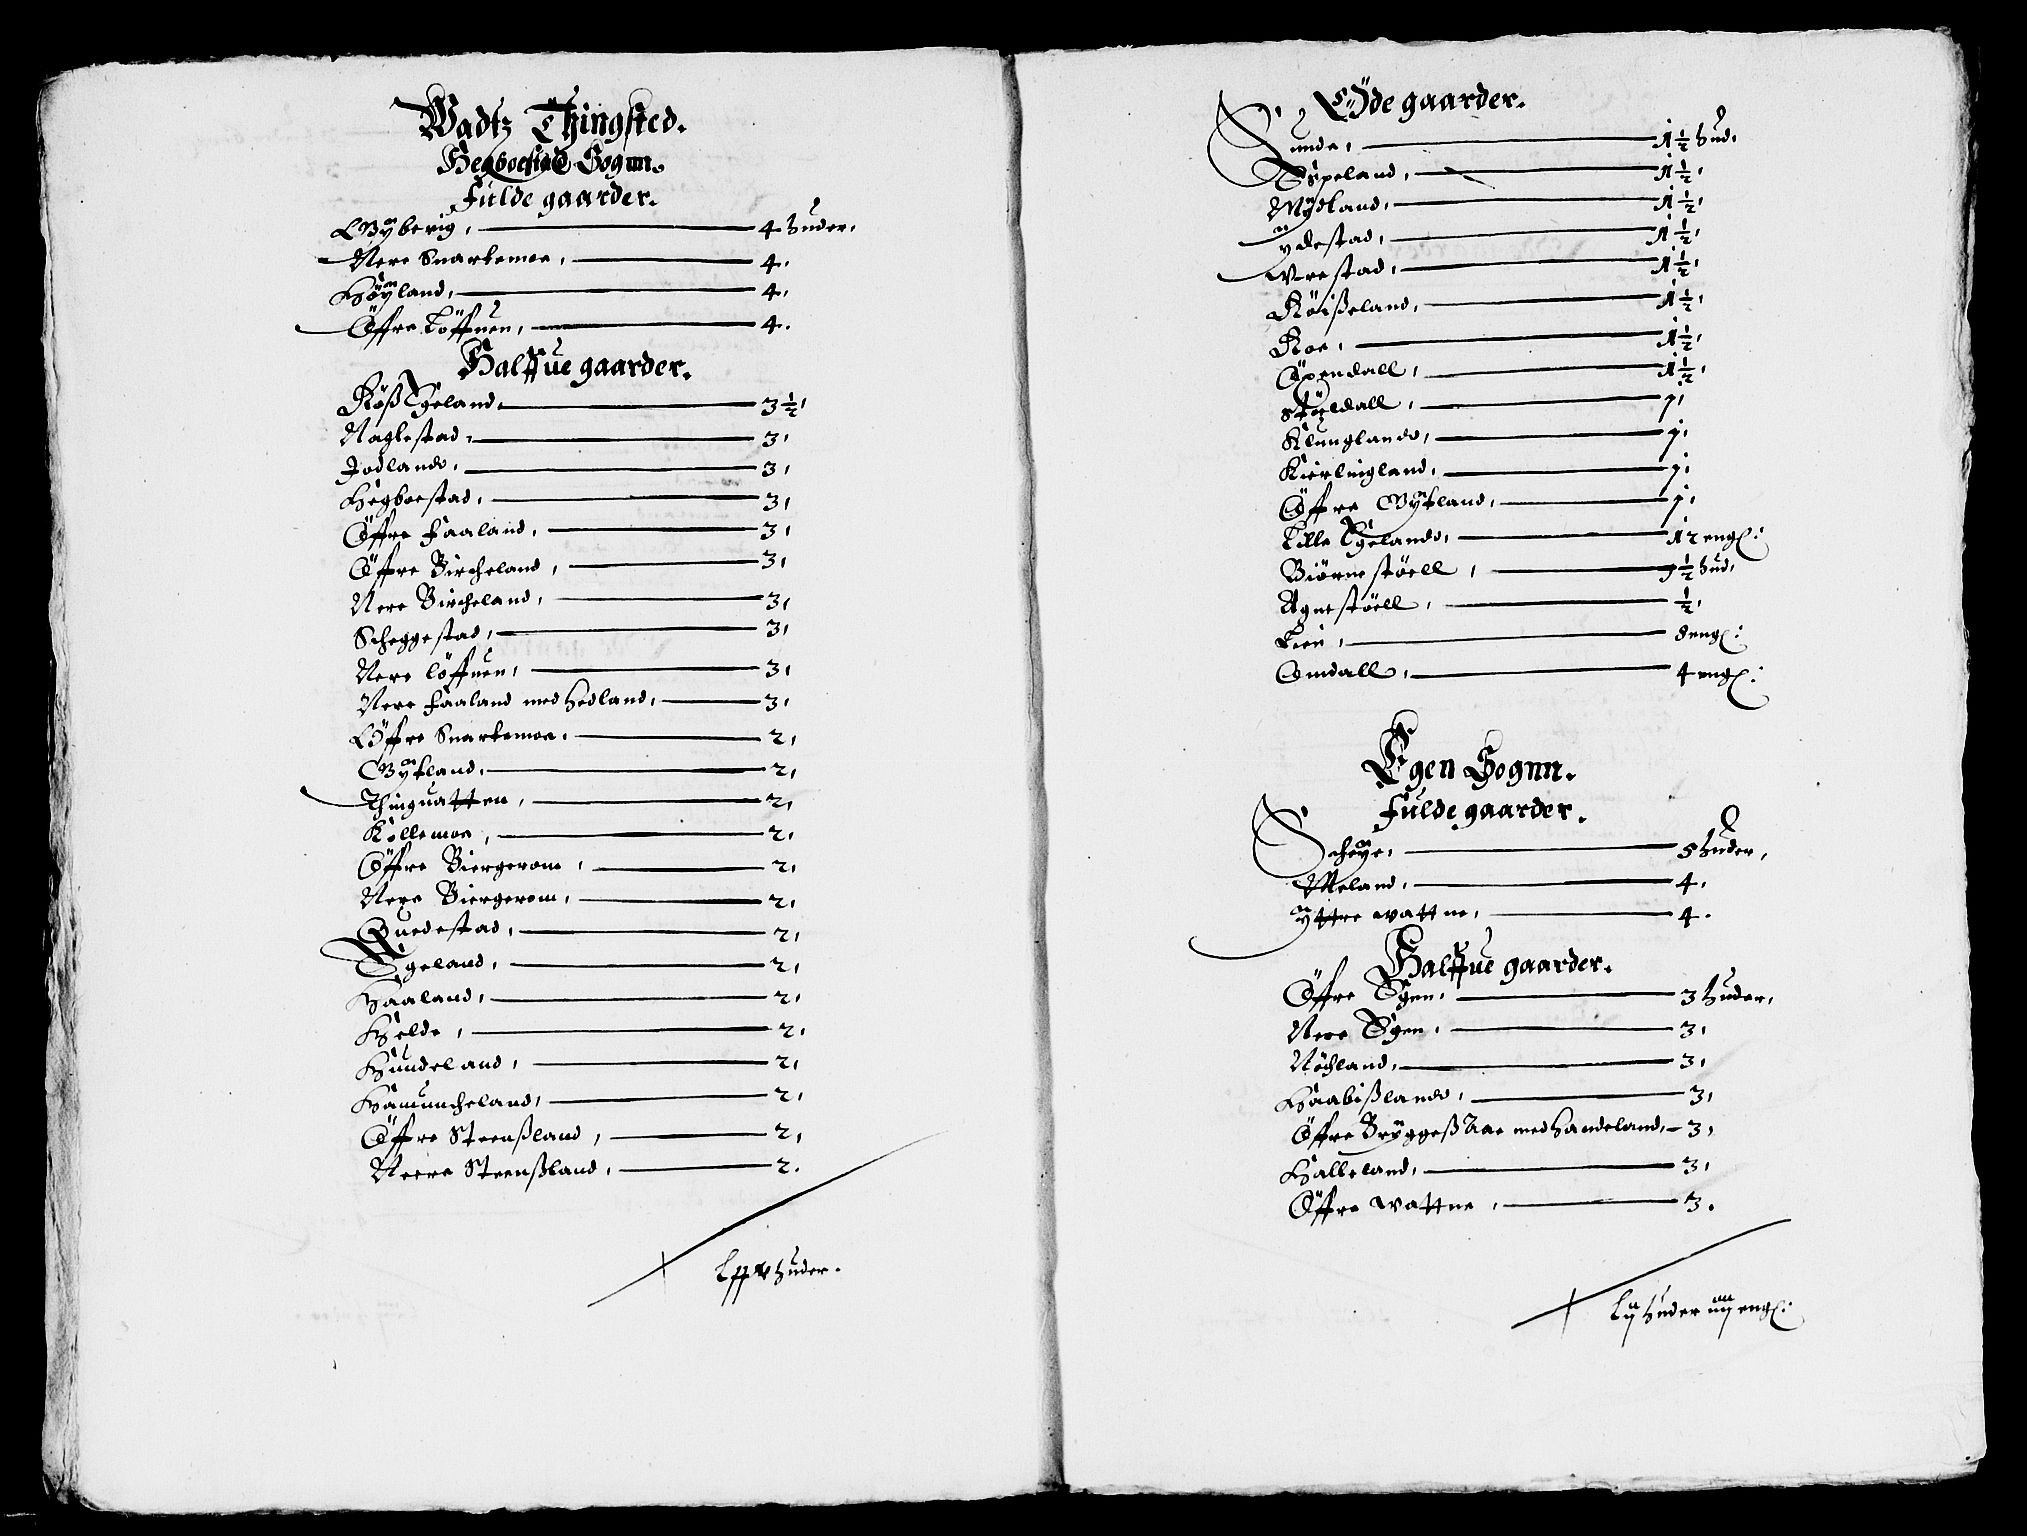 Wadtz Thingsted.
Hegboestad Sognn.
Fulde gaarder.
Gÿberig, 4 huder,
Nere Snartemoe, 4,
Høÿland, 4,
Öffre Löffuen, 4.
Halffue gaarder.
Röß Egeland, 3 1/2,
Naglestad, 3,
Jodland, 3,
Hegboestad, 3,
Öffre Faaland, 3,
Öffre Bircheland, 3,
Nere Bircheland, 3,
Scheggestad, 3,
Nere Löffuen, 3,
Nere Faaland med Hedland, 3,
Öffre Snartemoe, 2,
Gÿtland, 2,
Thinguatten, 2,
Kollemoe, 2,
Öffre Biergerom, 2,
Nere Biergerom, 2,
Quedestad, 2,
Egeland, 2,
Haaland, 2,
Helde, 2,
Hundeland, 2,
Haauncheland, 2,
Öffre Steenßland, 2,
Neere Steenßland, 2.
Lxxv huder.
Öde gaarder.
Sunde, 1 1/2 hud,
Espeland, 1 1/2,
Mÿdland, 1 1/2,
ÿdestad, 1 1/2,
Vrestad, 1 1/2,
Röißeland, 1 1/2,
Roe, 1 1/2,
Öxendall, 1 1/2,
Stÿldall, 1,
Klungland, 1,
Kierlingland, 1,
Öffre Gÿtland, 1,
Lille Egeland, 12 engl:
Biörnestöell, 1 1/2 hud,
Agnestöell, 1/2,
Lien, 8 engl:
Omdall, 4 engl:
Egen Sognn.
Fulde gaarder.
Scheÿe, 5 huder,
Meland, 4,
ÿttre Wattne, 4.
Halffue gaarder.
Öffre Egen, 3 huder,
Nere Egen, 3,
Nöchland, 3,
Haabißland, 3,
Öffre Brÿggeß Aae med Handeland, 3,
Halleland, 3,
Öffre Wattne, 3.
Lij huder iiij engl: